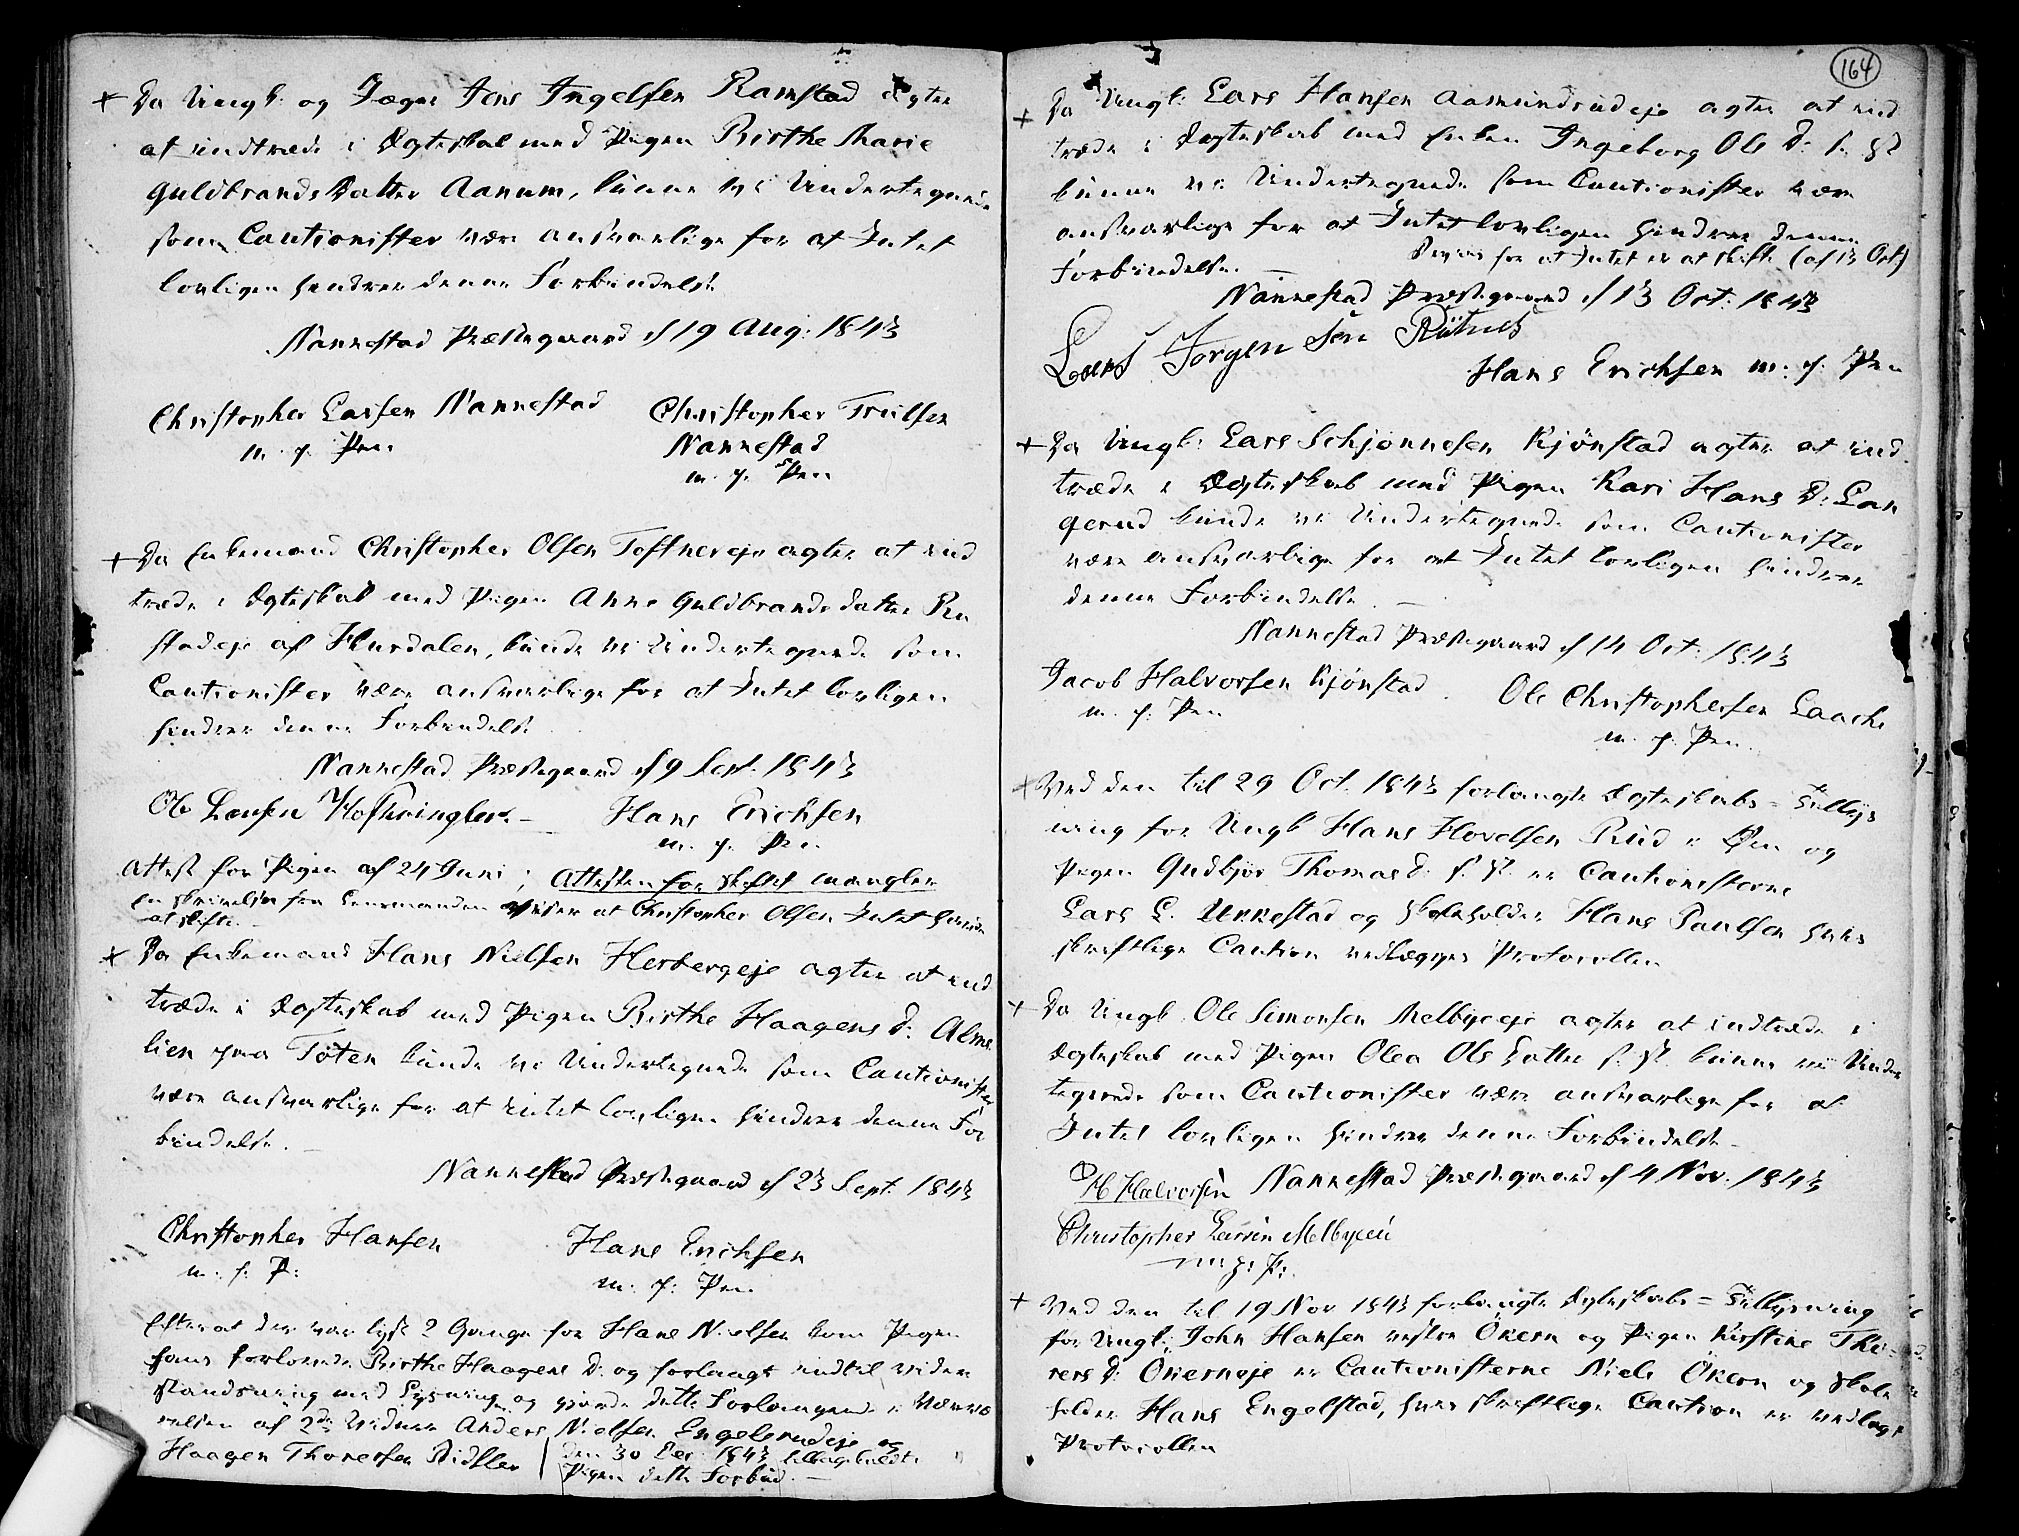 + Da Ungk: og Jæger Jens Ingelsen Ramstad agter
at indtræde i Ægteskab med Pigen Birthe Marie
Guldbrands Datter Aanum, kunne vi Undertegnede
som Cautionister være ansvarlige for at Intet
lovligen hindrer denne Forbindelse
Nannestad Præstegaard d 19 Aug: 1843
Christopher Larsen Nannestad
m. p. Pen
Christopher Trulsen
Nannestad
m. p. Pen
+ Da Enkemand Christopher Olsen Toftnereje agter at ind
træde i Ægteskab med Pigen Anne Guldbrands datter
stadeje af Hurdalen, kunde vi Undertegnede som
Cautionister være ansvarlige for at Intet lovligen
hindrer denne Forbindelse
Nannestad Præstegaard d 9 Sept. 1843
Ole Larsen
Hans Erichsen
m. p. Pen
Attest for Pigen af 24 Juni; Attesten for skiftet mangler
en skrivelse fra Lensmanden viser at Christopher Olsen Intet havde
at skifte.
+ Da Enkemand Hans Nielsen Herbergeje agter at ind
træde i Ægteskab med Pigen Birthe Haagens D: Alme
lien paa Toten kunde vi Undertegnede som Cautionister
være ansvarlige for at intet lovligen hindrer denne For
bindelse.
Nannestad Præstegaard d 23 Sept. 1843
Christopher Hansen
m. p. P:
Hans Erichsen
m. p. Pen
Efter at der var lyst 2 Gange for Hans Nielsen kom Pigen
hans forlovede Birthe Haagens D: og forlangte indtil videre
standsning med Lysning og gjorde dette Forlangende i Nærvæ
relsen af 2de Vidner Anders Nielsen Engelsrudeje og
Haagen Thoresen
den 30 Dec. 1843 tilbagekaldte
Pigen dette Forbud.
164
+ Da Ungk: Lars Hansen Aamundrudeje agter at ind
træde i Ægteskab med Enken Ingeborg Ols D: s. St
kunne vi Undertegnede som Cautionister være
ansvarlige for at Intet lovligen hindrer denne
Forbindelse.
Beviis for at Intet er at skifte (af 13 Oct)
Nannestad Præstegaard d 13 Oct: 1843
Lars Jørgensen
Hans Erichsen m. p. Pen
+ Da Ungk: Lars Schjønnesen Kjønstad agter at ind
træde i Ægteskab med Pigen Kari Hans D: Lan
gerud kunde vi Undertegnede som Cautionister
være ansvarlige for at Intet lovligen hindrer
denne Forbindelse.
Nannestad Præstegaard d 14 Oct: 1843
Jacob Halvorsen Kjønstad
m. p. Pen
Ole Christophersen Laache
m. p. Pen.
+ Ved den til 29 Oct. 1843 forlangte Ægteskabs= Tillys
ning for Ungk Hans Hovelsen Rud i Øen og
Pigen Gudbjør Thomas D: s. St. er Cautionisterne
Lars L. Unnestad og Skoleholder Hans Paulsen hvis
skriftlige Caution vedlægges Protocollen
+ Da Ungk. Ole Simonsen Melbyeeje agter at indtræde i
Ægteskab med Pigen Olea Ols Datter s. St. kunne vi Under
tegnede som Cautionister være ansvarlige for at
Intet lovligen hindrer denne Forbindelse
Nannestad Præstegaard d 4 Nov. 1843
H Halvorsen
Christopher Larsen Melbyeei
m: p: P:
+ Ved den til 19 Nov 1843 forlangte Ægteskabs= Tillysning
for Ungk: John Hansen vestre Økern og Pigen Kirstine Tho
rers D: Økerneje er Cautionisterne Niels Økern og Skole
holder Hans Engelstad, hvis skriftlige Caution er vedlagt
Protocollen